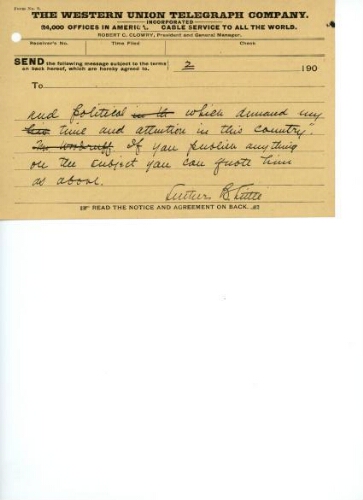 Form No. 8.
THE WESTERN UNION TELEGRAPH COMPANY.
INCORPORATED
24,000 OFFICES IN AMERICA. CABLE SERVICE TO ALL THE WORLD.
ROBERT C. CLOWRY, President and General Manager.
Receiver's No. Time Filed Check
SEND the following message subject to the terms on back hereof, which are hereby agreed to. 2 190
To
and political in th which demand my
his time and attention in this country."
Mr Woodruff. If you publish anything
on the subject you can quote him
as above.
Luther B Little
READ THE NOTICE AND AGREEMENT ON BACK.